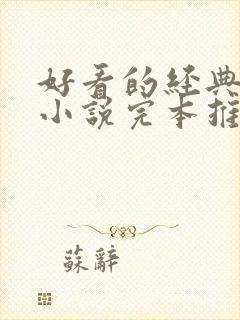 好看的经典
小說完本推
蘇辭